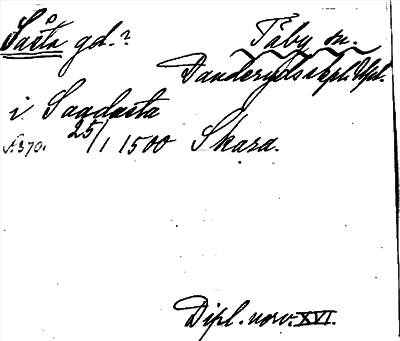 Såsta gd.? Täby sn.
Danderyds skpl. Upl.
i Saadasta
s. 370. 25/1 1500 Skara.
Dipl. norv. XVI.